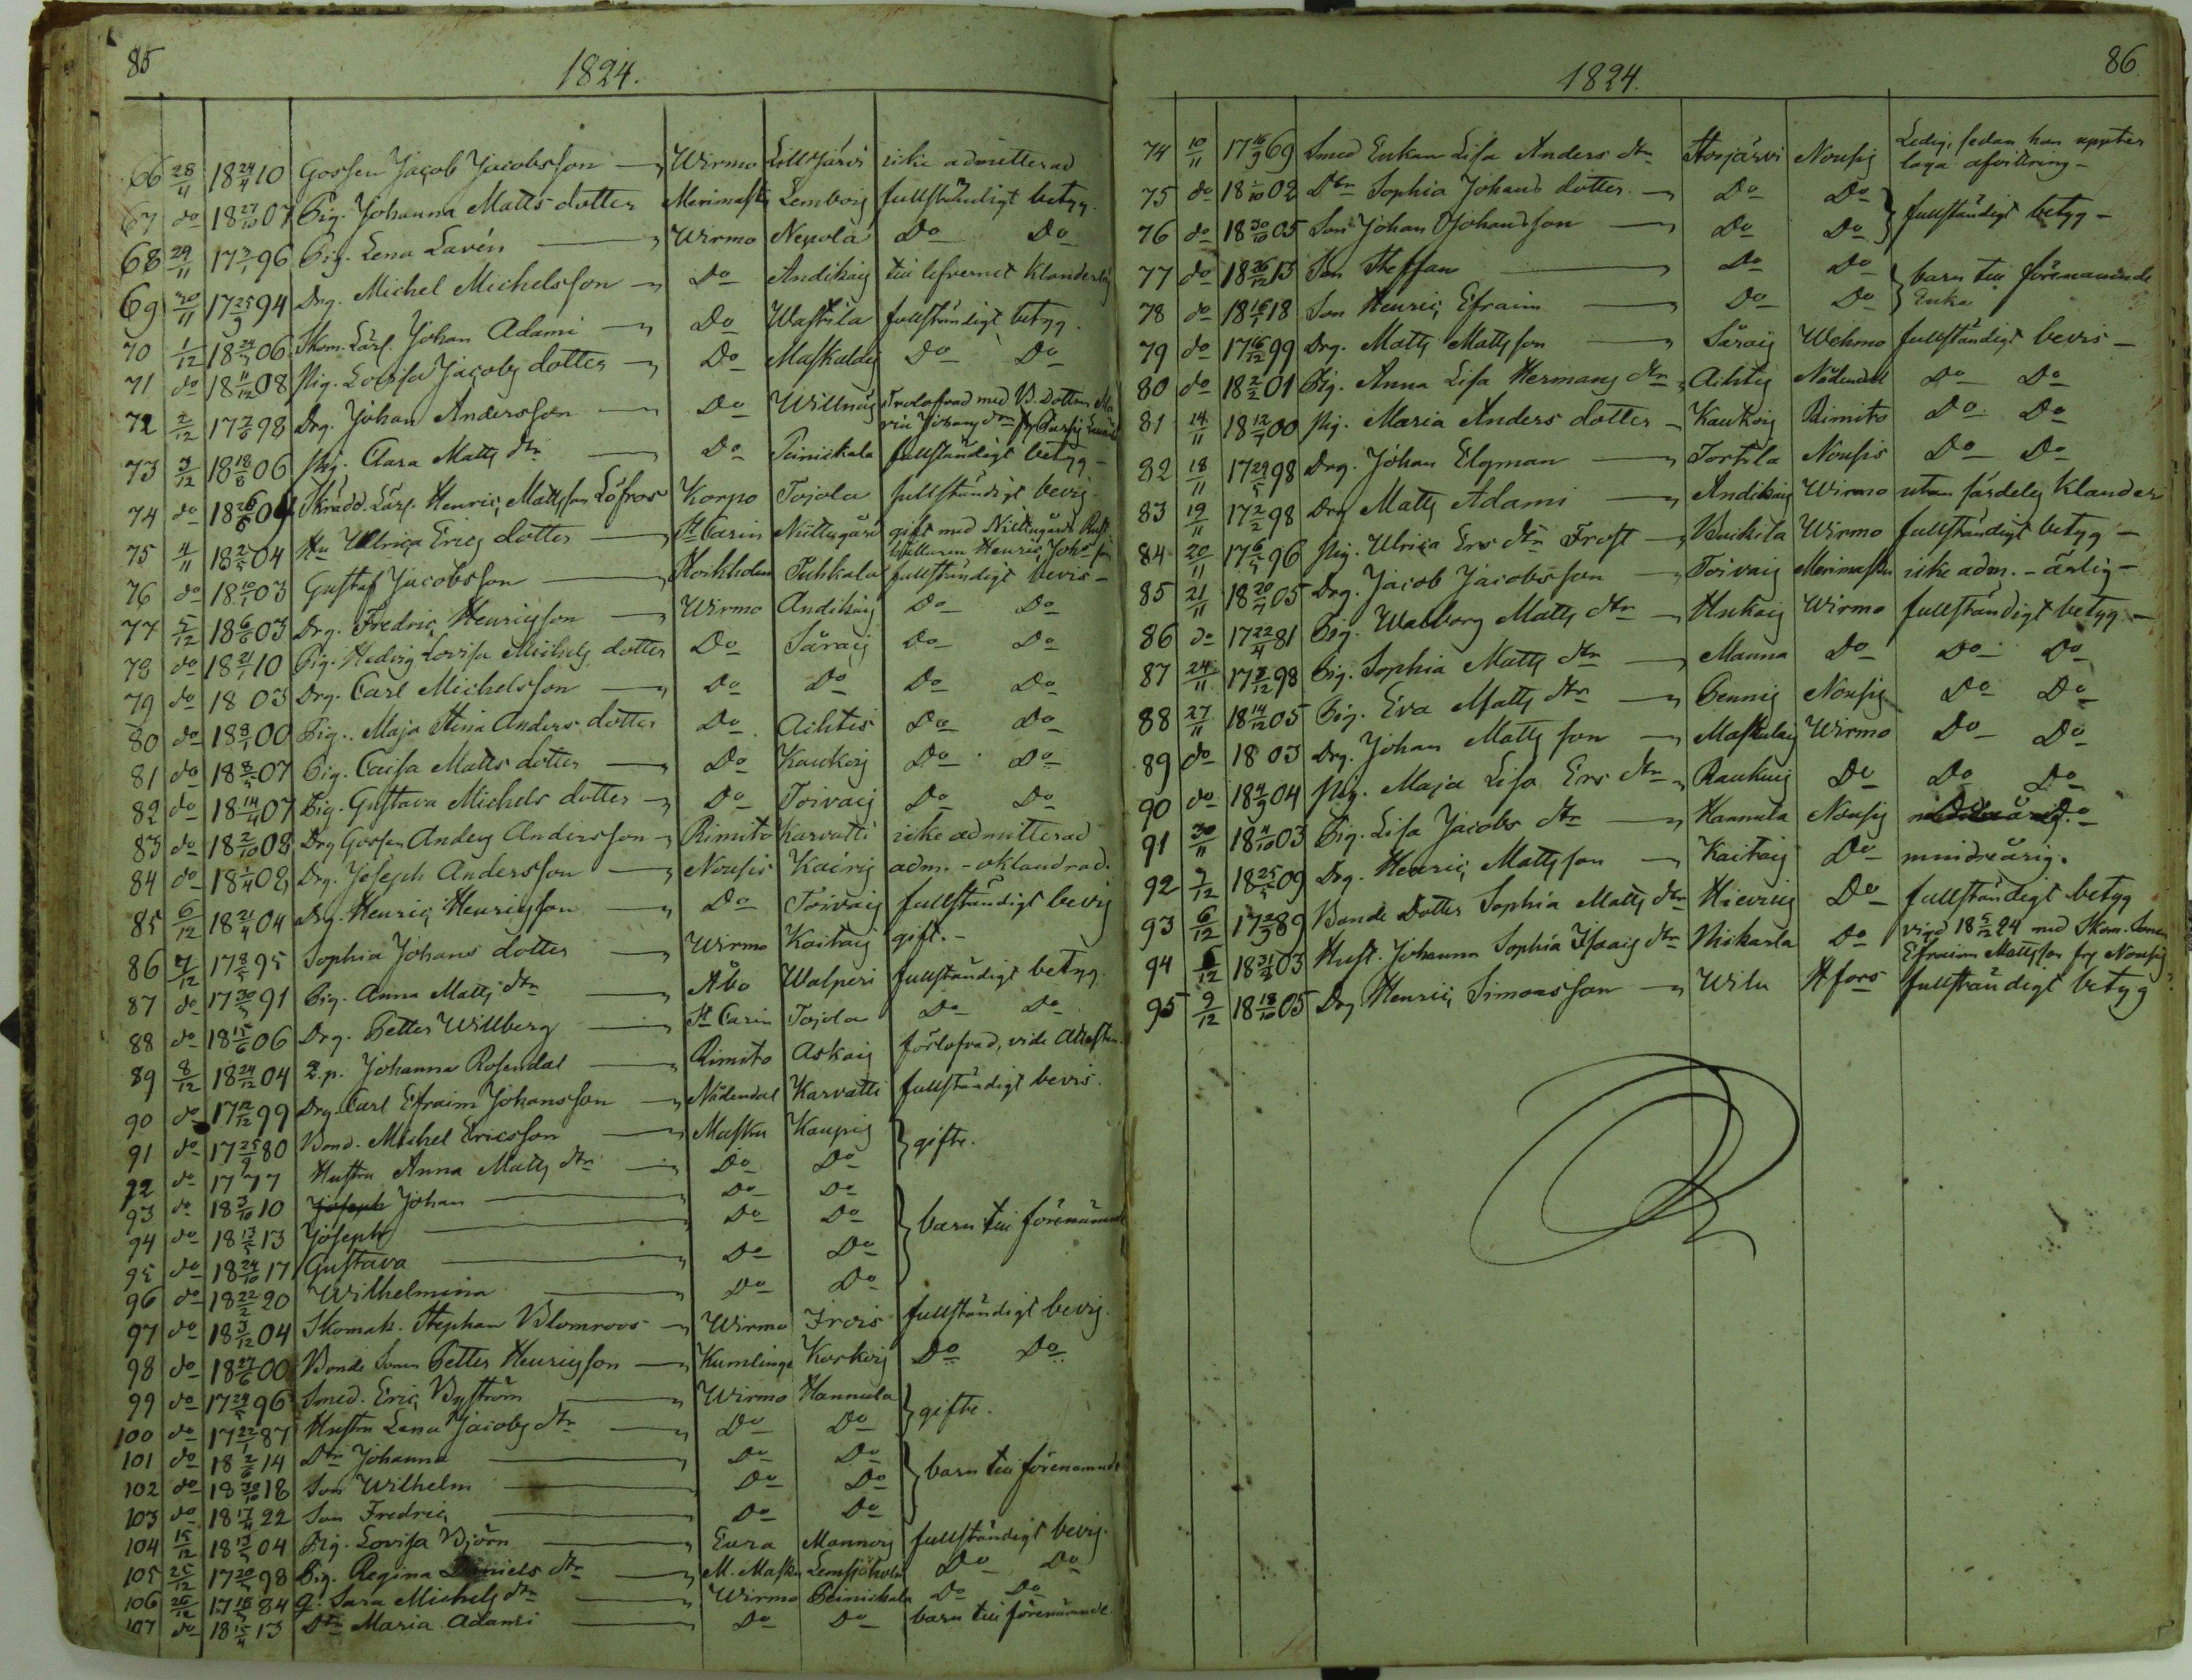 85
1824.
66 28/11 18 24/4 10 Gossen Jacob Jacobsson Wirmo Lilljärvi icke admitterad
67 do 18 27/10 07 Pig. Johanna Matts dotter Merimasku Lemborg fullständigt betyg.
68 29/11 17 7/1 96 Pig. Lena Lavén Wirmo Nepola Do Do
69 30/11 17 25/9 94 Drg. Michel Michelsson Do Andikaig till lefvernet klanderlig
70 1/12 18 06 Skom. Lärl. Johan Adami Do Wastila fullständigt betyg.
71 do 18 11/12 08 Pig. Lovisa Jacobs dotter Do Maskulaig Do Do
72 2/12 17 7/6 98 Drg. Johan Andersson Do Willnäs Trolofvad med B. Dottren Ma
ria Johans dtr
73 3/12 18 18/8 06 Pig. Clara Matts dtr Do Peinikala fullständigt betyg
74 do 18 26/6 04 Skrädd. Lärl. Henric Mattsson Löfroos Korpo Tojola fullständigt bevis.
75 4/11 18 2/5 04 Hu Ulrica Erics dotter St Carin Niittugård gift med Niittugårds Rust
hållaren Henric Johsson
76 do 18 10/1 03 Gustaf Jacobsson Koikholm Tuhkala fullständigt bevis
77 5/12 18 6/6 03 Drg. Fredric Henricsson Wirmo Andikaig Do Do
78 do 18 21/1 10 Pig. Hedvig Lovisa Michels dotter Do Säraig Do Do
79 do 18 03 Drg. Carl Michelsson Do Do Do Do
80 do 18 8/1 00 Pig. Maja Stina Anders dotter Do Aihtis Do Do
81 do 18 8/5 07 Pig. Caisa Matts dotter Do Kaukoig Do Do
82 do 18 14/4 07 Pig. Gustava Michels dotter Do Toivaig Do Do
83 do 18 2/10 08 Drg Gossen Anders Andersson Rimito Karvatti icke admitterad
84 do 18 1/4 02 Drg. Joseph Andersson Nousis Kairis adm. - oklandrad.
85 6/12 18 21/4 04 Drg. Henric Henricsson Do Toivaig fullständigt bevis
86 7/12 17 8/5 95 Sophia Johans dotter Wirmo Kaitaig gift.
87 do 17 30/3 91 Pig. Anna Matts dtr Åbo Walperi fullständigt betyg.
88 do 18 15/6 06 Drg. Petter Willberg St Carin Tojola Do Do
89 8/12 18 24/12 04 Q.p. Johanna Rosendal Rimito Askaig förlofvad, vide Attesten.
90 do 17 12/12 99 Drg. Carl Efraim Johansson Nådendal Karvatti fullständigt bevis.
91 do 17 25/9 80 Bond. Michel Ericsson Masku Kaupis gifte.
92 do 17 77 Hustru Anna Matts dtr Do Do
93 do 18 3/10 10 Joseph Johan Do Do
94 do 18 13/5 13 Joseph Do Do barn till förenämnde
95 do 18 24/10 17 Gustava Do Do
96 do 18 22/2 20 Wilhelmina Do Do
97 do 18 3/12 04 Skomak. Stephan Blomroos Wirmo Irois fullständigt bevis.
98 do 18 27/6 00 Bonde Sonen Petter Henricsson Kumlinge Korkois Do Do
99 do 17 29/5 96 Smed. Eric Byström Wirmo Hannula gifte.
100 do 17 22/1 87 Hustru Lena Jacobs dtr Do Do
101 do 18 2/6 14 Dtr Johanna Do Do barn till förenämnde
102 do 18 30/10 18 Son Wilhelm Do Do
103 do 18 17/4 22 Son Fredric Do Do
104 15/12 18 13/3 04 Pig. Lovisa Björn Eura Mannois fullständigt bevis.
105 25/12 17 20/7 98 Pig. Regina Daniels dtr M. Masku Lemsjöholm Do Do
106 26/12 17 84 Q. Sara Michels dtr Wirmo Peinikala Do Do
107 do 18 15/4 13 Dtr Maria Adami Do Do barn till förenämnde.
86
1824.
74 10/11 17 16/9 69 Smed Enkan Lisa Anders dtr Hosjärvi Nousis Ledig, sedan hon uppter
laga afvittring
75 do 18 1/10 02 Dtr Sophia Johans dotter Do Do
76 do 18 30/10 05 Son Johan Johansson Do Do fullständigt betyg
77 do 18 26/12 13 Son Steffan Do Do barn till förenämnde
Enka
78 do 18 16/5 18 Son Henric Efraim Do Do
79 do 17 16/12 99 Drg. Matts Mattsson Säraig Wehmo fullständigt bevis
80 do 18 2/2 01 Pig. Anna Lisa Hermans dtr Aihtis Nådendal Do Do
81 14/11 18 12/7 00 Pig. Maria Anders dotter Kaukois Rimito Do Do
82 18/11 17 29/5 98 Drg. Johan Elgman Tortila Nousis Do Do
83 19/11 17 2/2 98 Drg Matts Adami Andikaig Wirmo utan särdeles klander
84 20/11 17 6/5 96 Pig. Ulrica Ers dtr Frost Buckila Wirmo fullständigt betyg
85 21/11 18 20/7 05 Drg. Jacob Jacobsson Toivaig Merimasku icke adm. - ärlig
86 do 17 22/4 81 Pig. Walborg Matts dtr Hukaig Wirmo fullständigt betyg
87 24/11 17 7/12 98 Pig. Sophia Matts dtr Manna Do Do Do
88 27/11 18 14/12 05 Pig. Eva Matts dtr Pennis Nousis Do Do
89 do 18 03 Drg. Johan Mattsson Maskulaig Wirmo Do Do
90 do 18 9 04 Pig. Maja Lisa Ers dtr Rauhuis Do Do Do
91 30/11 18 10 03 Pig. Lisa Jacobs dtr Hannula Nousis Do
92 2/12 18 25/5 09 Drg. Henric Mattsson Kaitaig Do minderårig.
93 6/12 17 28/9 89 Bonde Dotter Sophia Matts dtr Hievois Do fullständigt betyg
94 6/12 18 31/2 03 Hust. Johanna Sophia Isaacs dtr Niskarla Do vigd 18 5/12 24 med Skom. Sonen
Efraim Mattsson frn Nousis
95 9/12 18 18/10 05 Drg Henric Simonsson Wilu Hfors fullständigt betyg